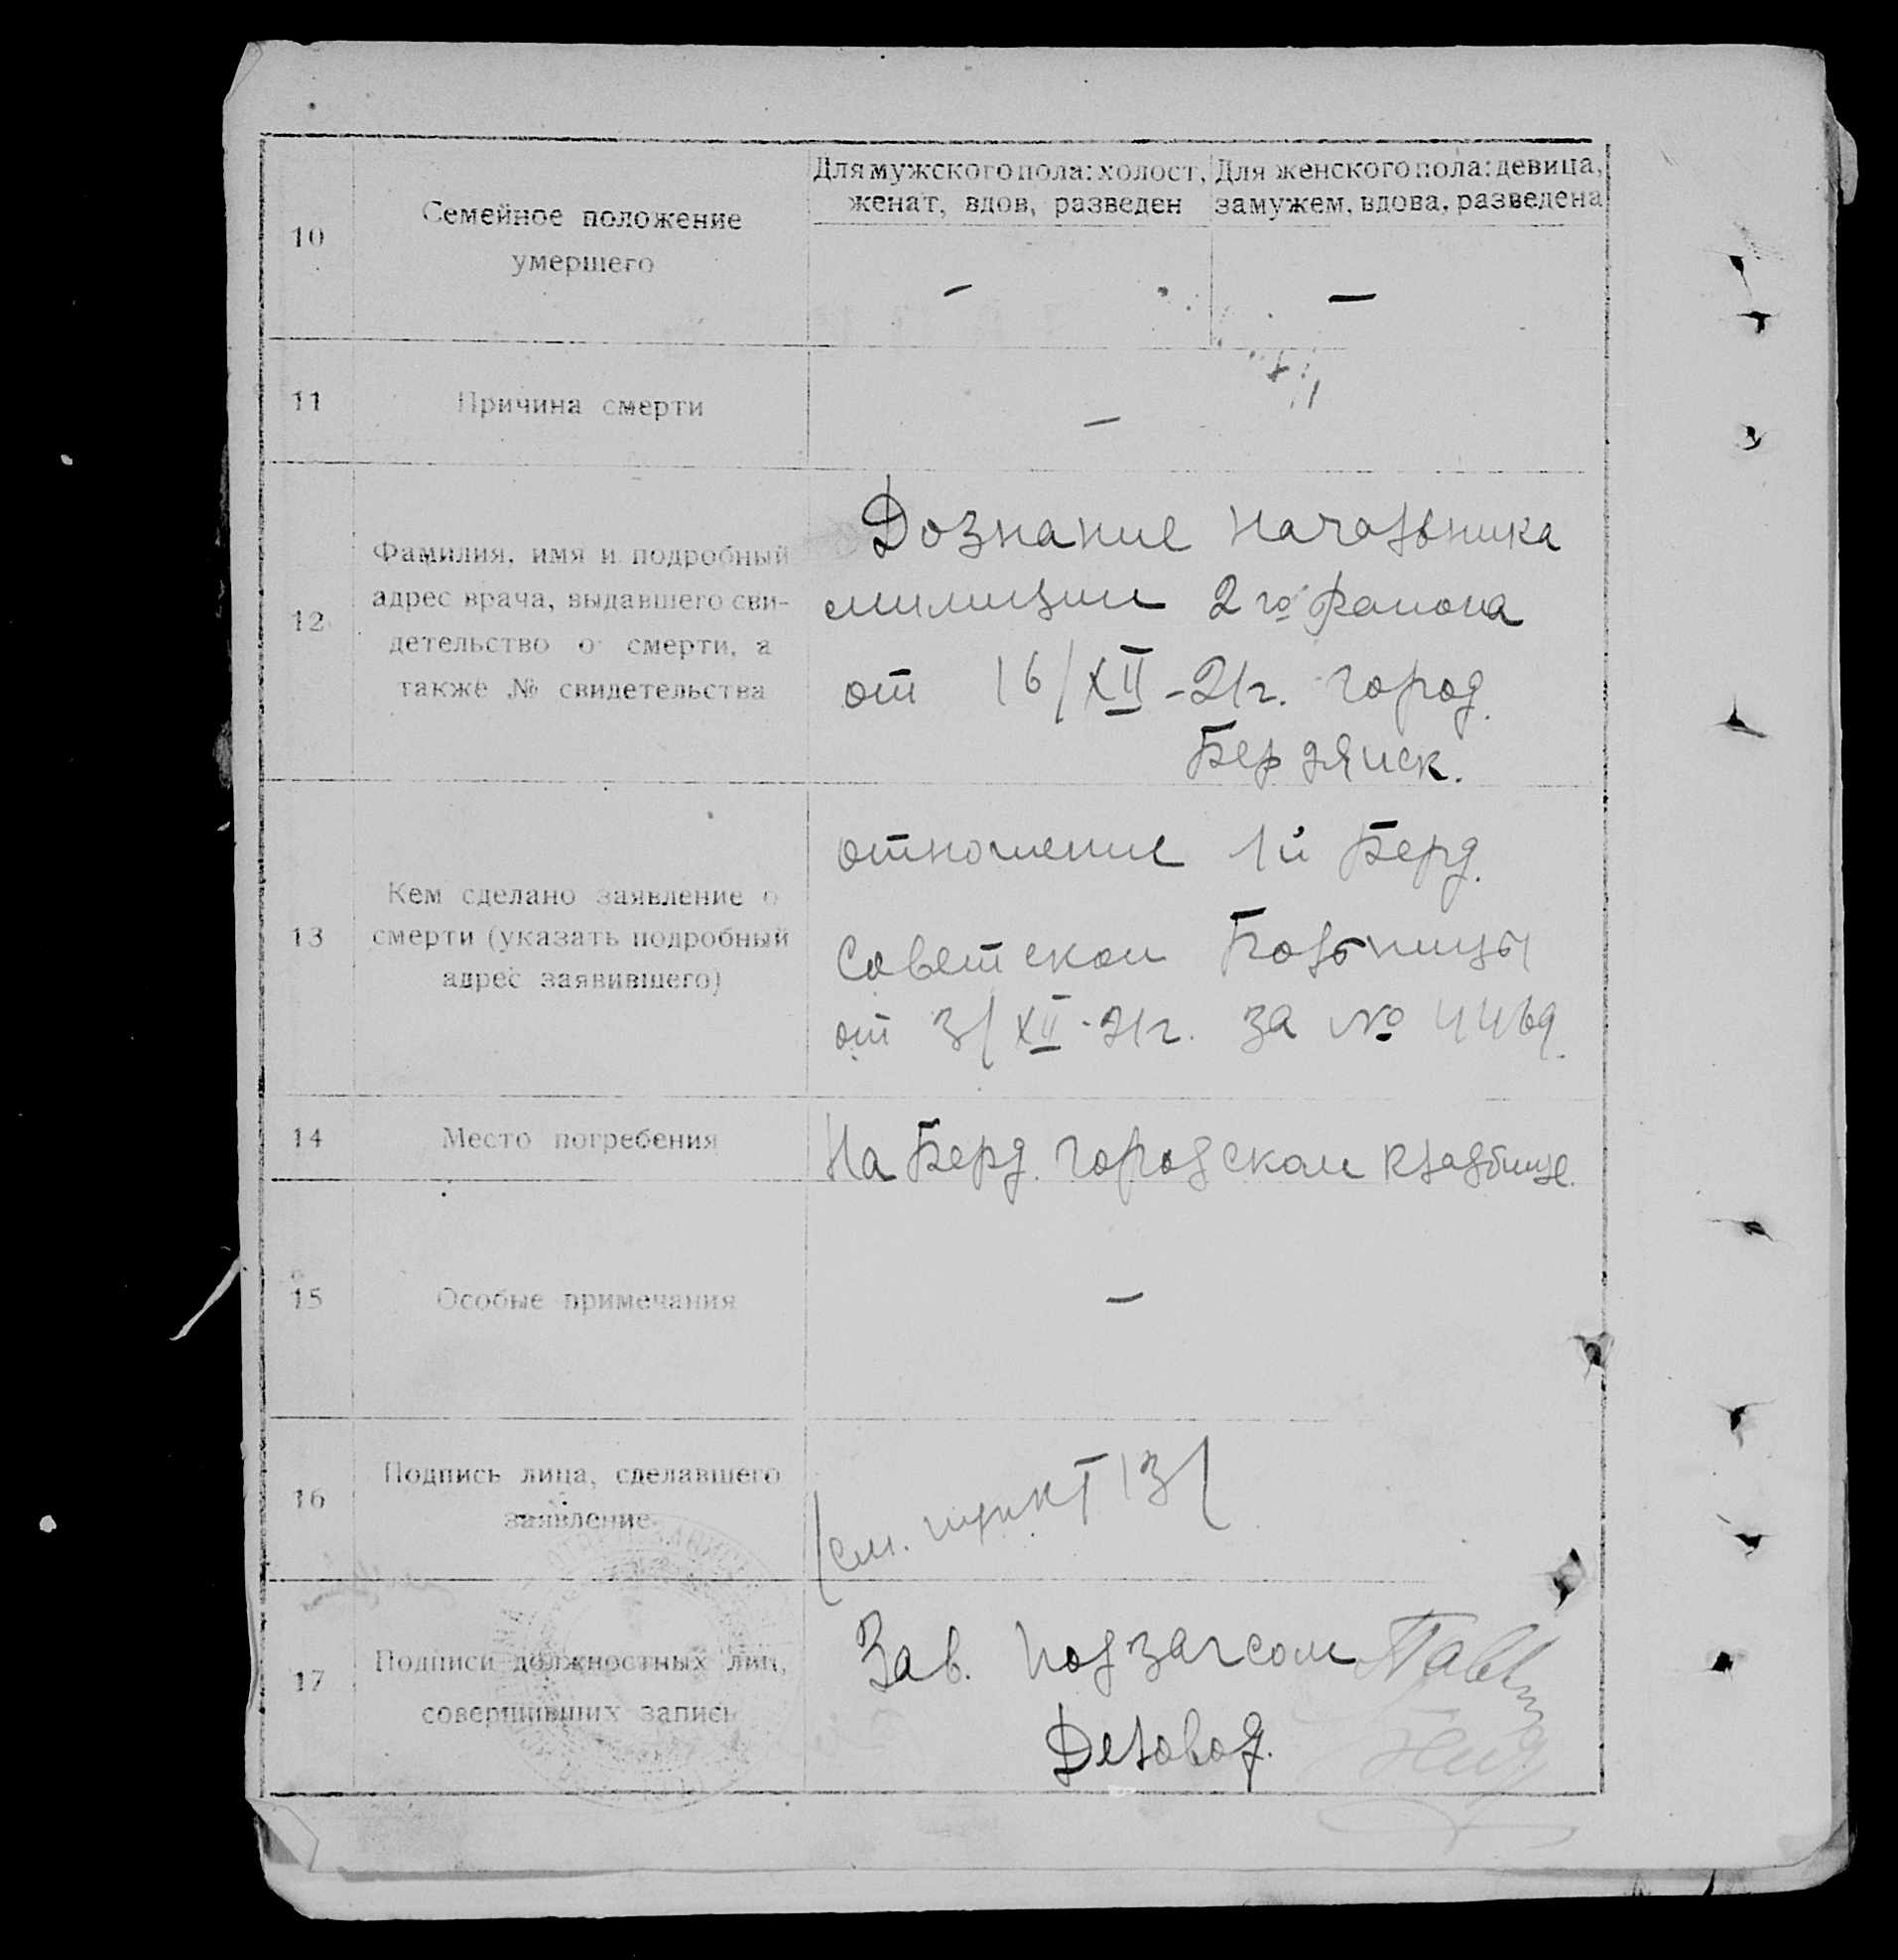 10
Семейное положение
умершего
Для мужского пола: холост,
женат, вдов, разведен
Для женского пола: девица,
замужем, вдова, разведена
—
—
11
Причина смерти
—
12
Фамилия, имя и подробный
адрес врача, выдавшего сви-
детельство о смерти, а
также № свидетельства
Дознание начальника
милиции 2го района
от 16/XII-21г. город
Бердянск.
13
Кем сделано заявление о
смерти (указать подробный
адрес заявившего)
отношение 1й Берд.
Советской Больницы
от 3/XII-21г. за № 4469.
14
Место погребения
На Берд. городском кладбище.
15
Особые примечания
—
16
Подпись лица, сделавшего
заявление
/см. пункт 13/
17
Подписи должностных лиц,
совершивших запись
Зав. подзагсом
Деловод.